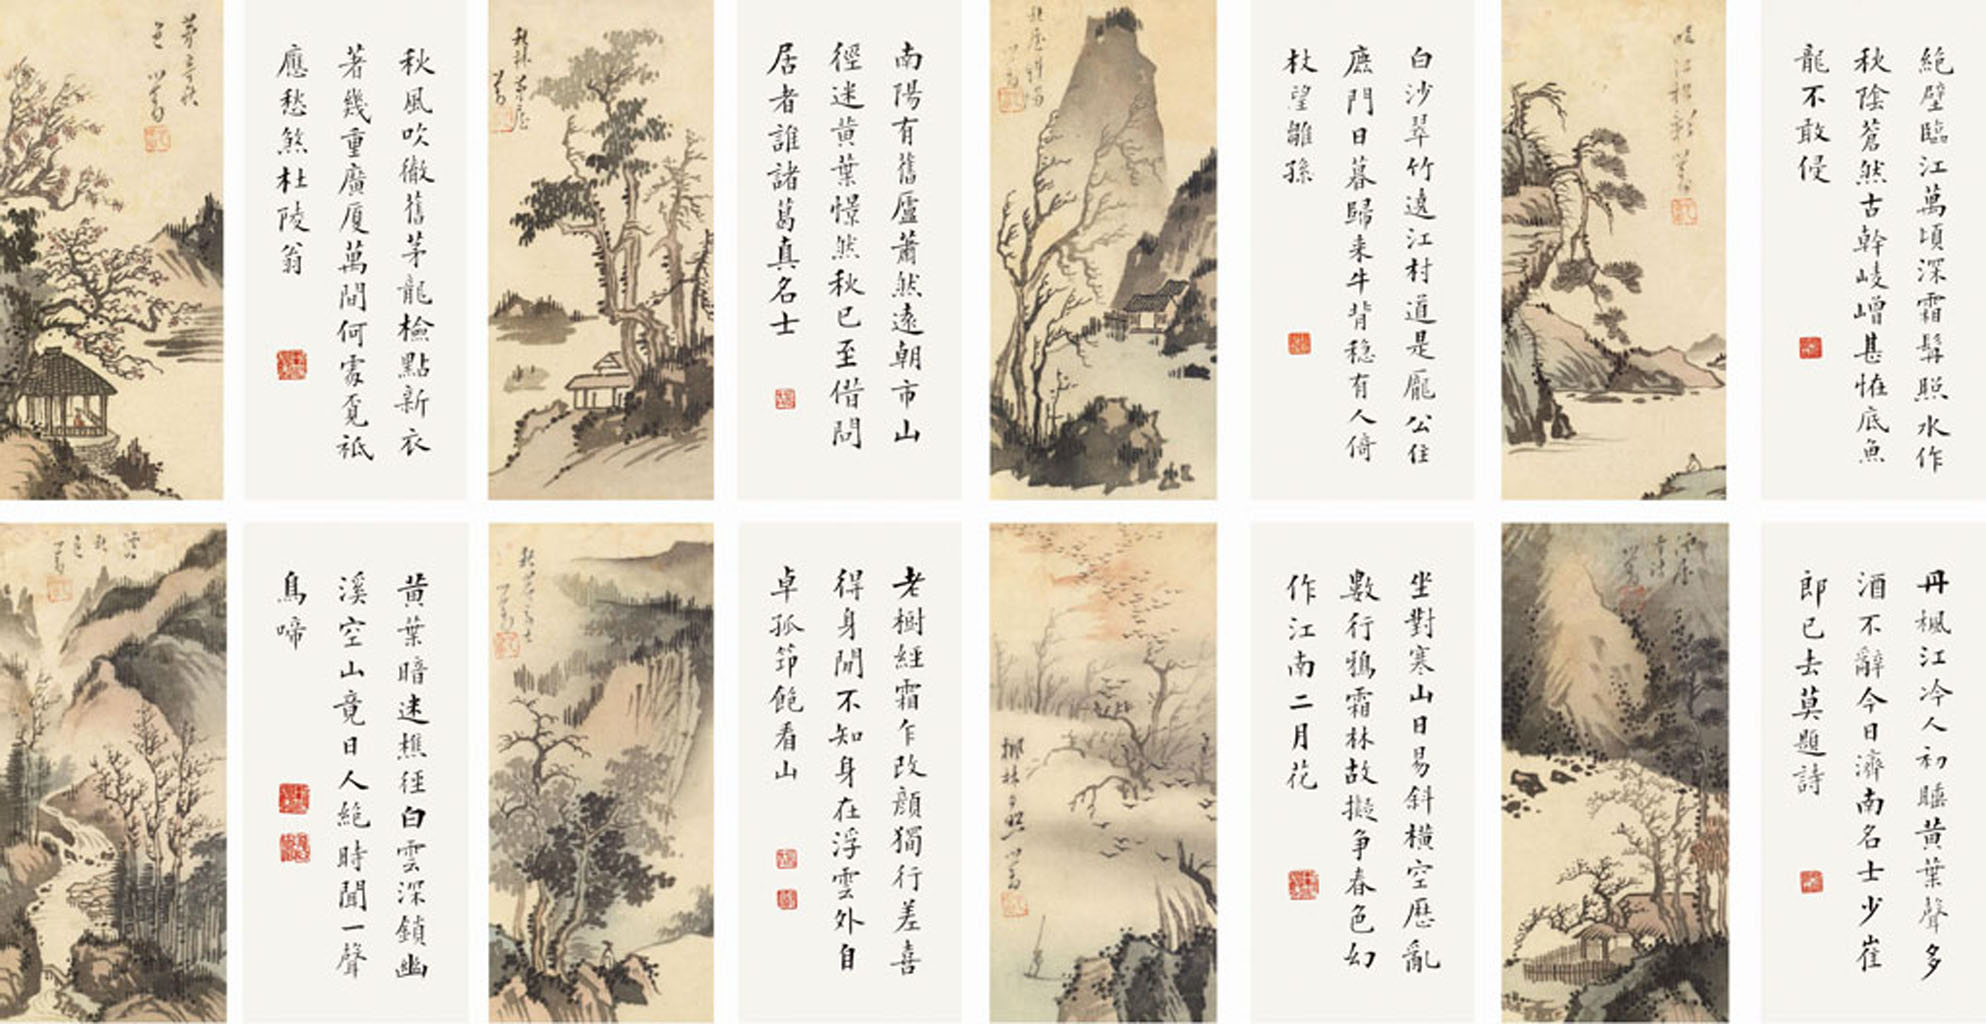 絕壁臨江萬頃深霜髯照水作
秋陰蒼然古幹崚嶒甚恠底魚
龍不敢侵
江松影 心畬
白沙翠竹遶江村道是龐公住
鹿門日暮歸來牛背穩有人倚
杖望雛孫
斜陽
心畬
南陽有舊廬蕭然遠朝市山
徑迷黃葉憬然秋已至借問
居者誰諸葛真名士
秋林茅屋
心畬
秋風吹徹舊茅龍檢點新衣
著幾重廣厦萬間何處覓祗
應愁煞杜陵翁
茅亭秋
色 心畬
丹楓江冷人初聽黃葉聲多
酒不辭今日濟南名士少崔
郎已去莫題詩
心畬
坐對寒山日易斜橫空歷亂
數行鴉霜林故擬爭春色幻
作江南二月花
楓林夕照 心畬
老樹經霜乍改顏獨行差喜
得身閒不知身在浮雲外自
卓孤筇飽看山
高士
心畬
黃葉暗迷樵徑白雲深鎖幽
溪空山竟日人絕時聞一聲
鳥啼
溪山
秋
色
心畬